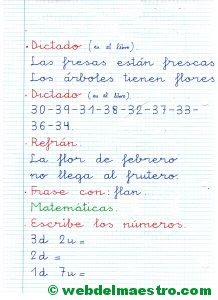 . Dictado (en el libro).
Las fresas están frescas
Los árboles tienen flores
. Dictado (en el libro).
30-39-31-38-32-37-33-
36-34.
. Refrán.
La flor de febrero
no llega al frutero.
. Frase con: flan.
Matemáticas.
. Escribe los números.
3d 2u =
2d =
1d 7u =
© webdelmaestro.com